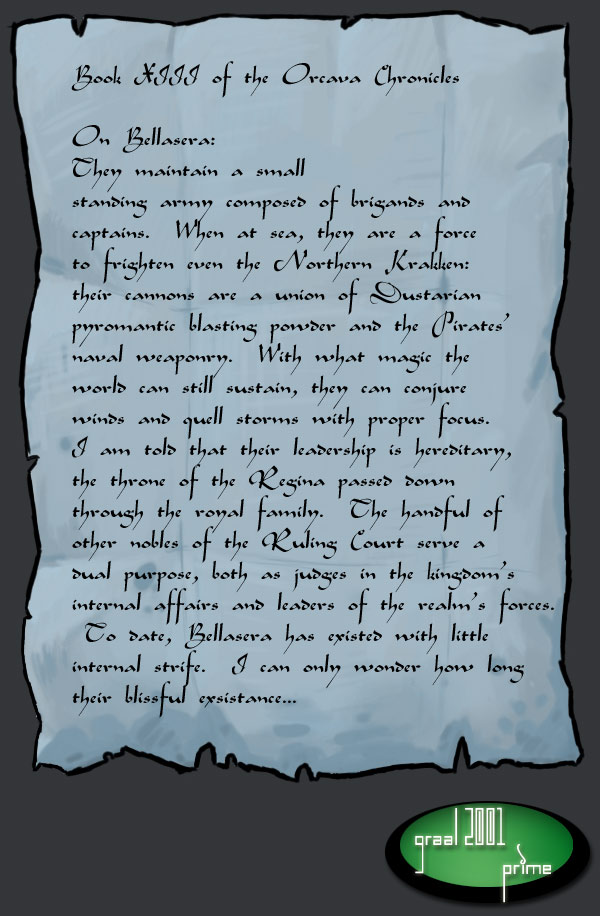 Book XIII of the Orcava Chronicles
On Bellasera:
They maintain a small
standing army composed of brigands and
captains. When at sea, they are a force
to frighten even the Northern Krakken:
their cannons are a union of Dustarian
pyromantic blasting powder and the Pirates'
naval weaponry. With what magic the
world can still sustain, they can conjure
winds and quell storms with proper focus.
I am told that their leadership is hereditary,
the throne of the Regina passed down
through the royal family. The handful of
other nobles of the Ruling Court serve a
dual purpose, both as judges in the kingdom's
internal affairs and leaders of the realm's forces.
To date, Bellasera has existed with little
internal strife. I can only wonder how long
their blissful exsistance...
graal 2001
prime